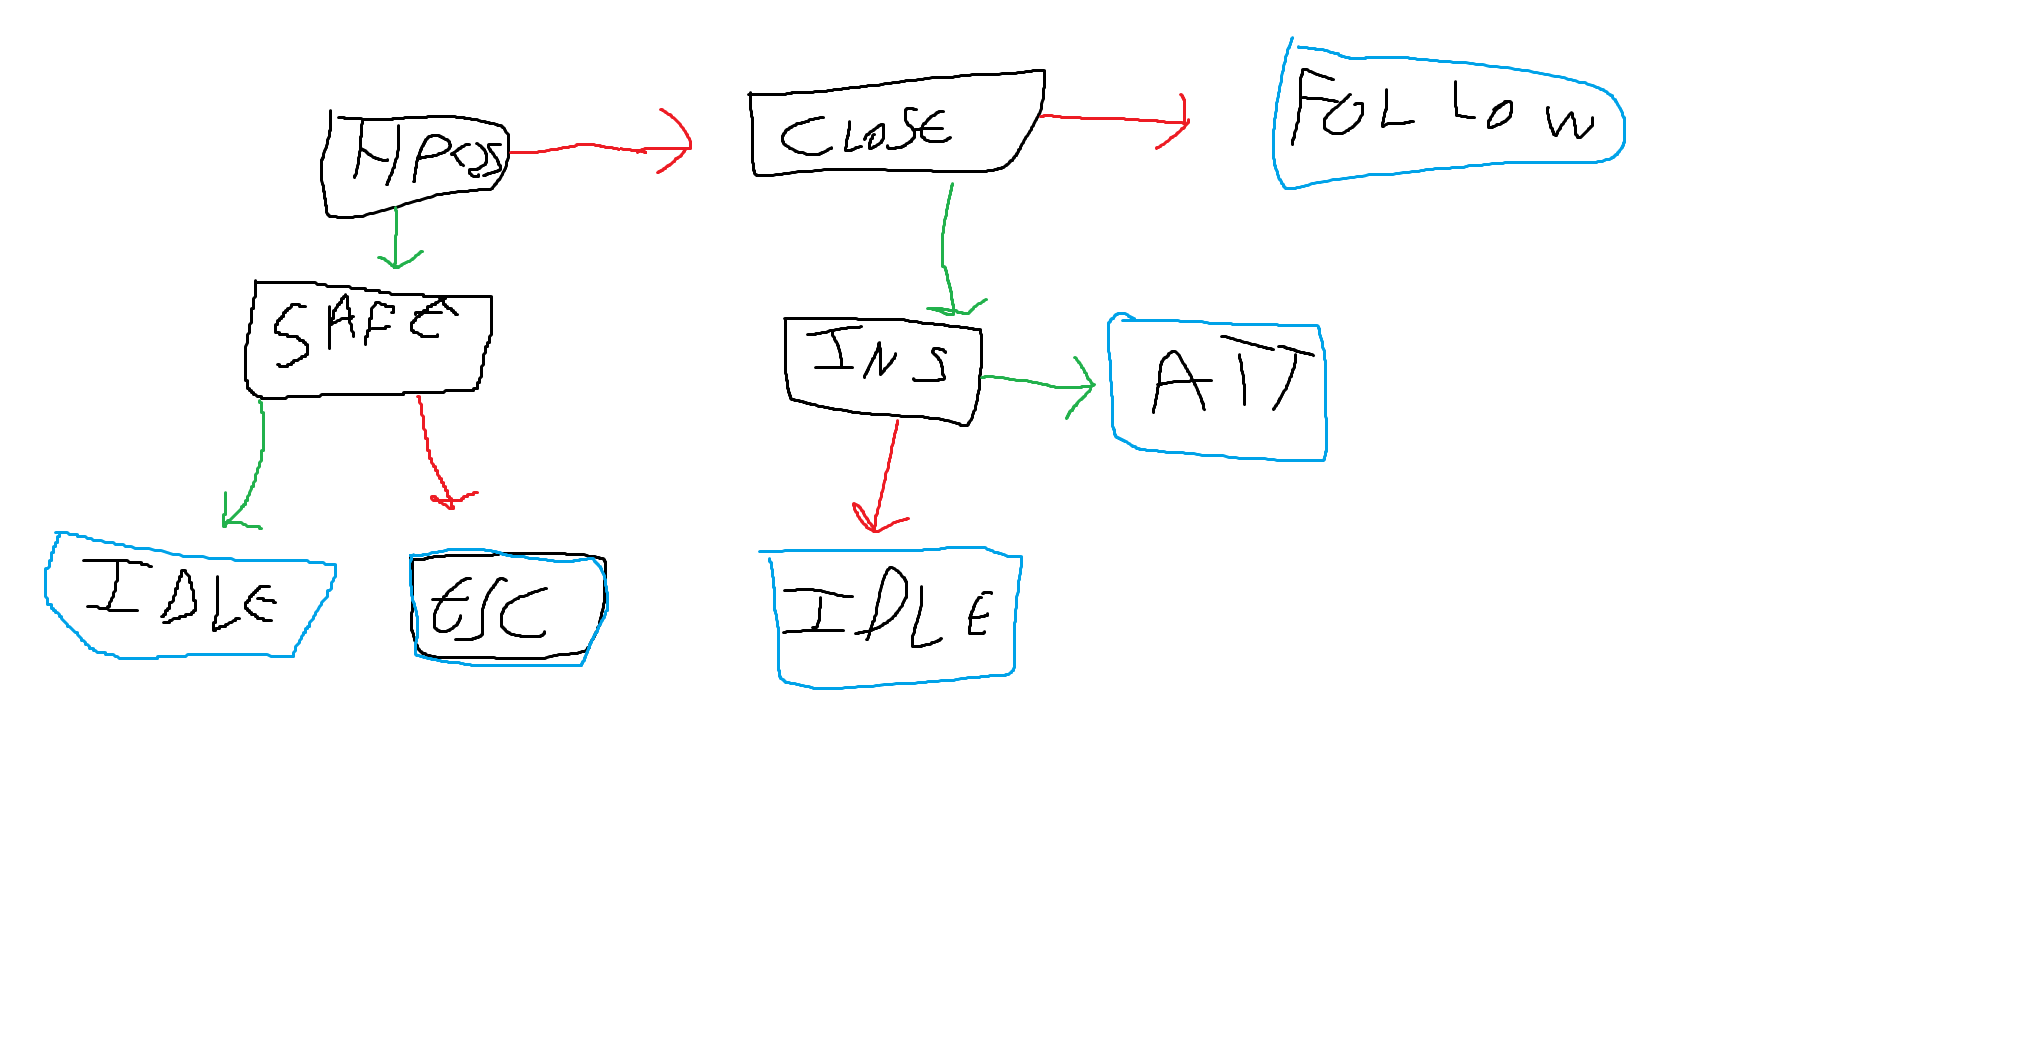 HPOS
CLOSE
FOLLOW
SAFE
INS
ATT
IDLE
ESC
IDLE